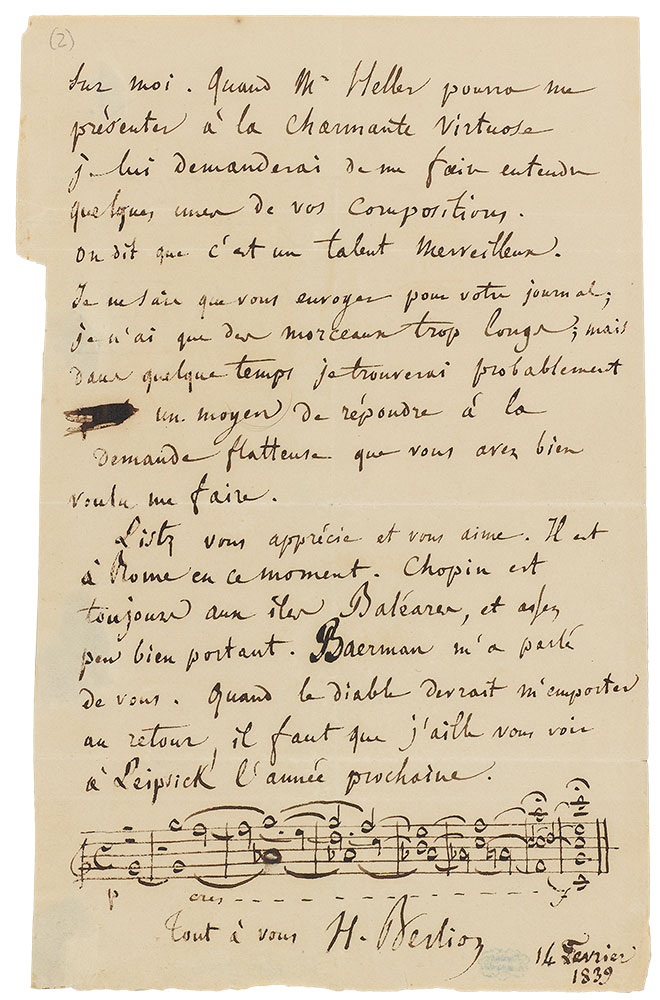 (2)
sur moi. Quand Mr Heller pourra me
présenter à la charmante virtuose
je lui demanderai de me faire entendre
quelques unes de vos compositions.
On dit que c'est un talent merveilleux.
Je ne sais que vous envoyer pour votre journal;
je n'ai que des morceaux trop longs; mais
dans quelque temps je trouverai probablement
un moyen de répondre à la
demande flatteuse que vous avez bien
voulu me faire.
Listz vous apprécie et vous aime. Il est
à Rome en ce moment. Chopin est
toujours aux îles Baléares, et assez
peu bien portant. Baerman m'a parlé
de vous. Quand le diable devrait m'emporter
au retour, il faut que j'aille vous voir
à Leipsick l'année prochaine.
p cres f
Tout à vous H. Berlioz
14 Fevrier
1839